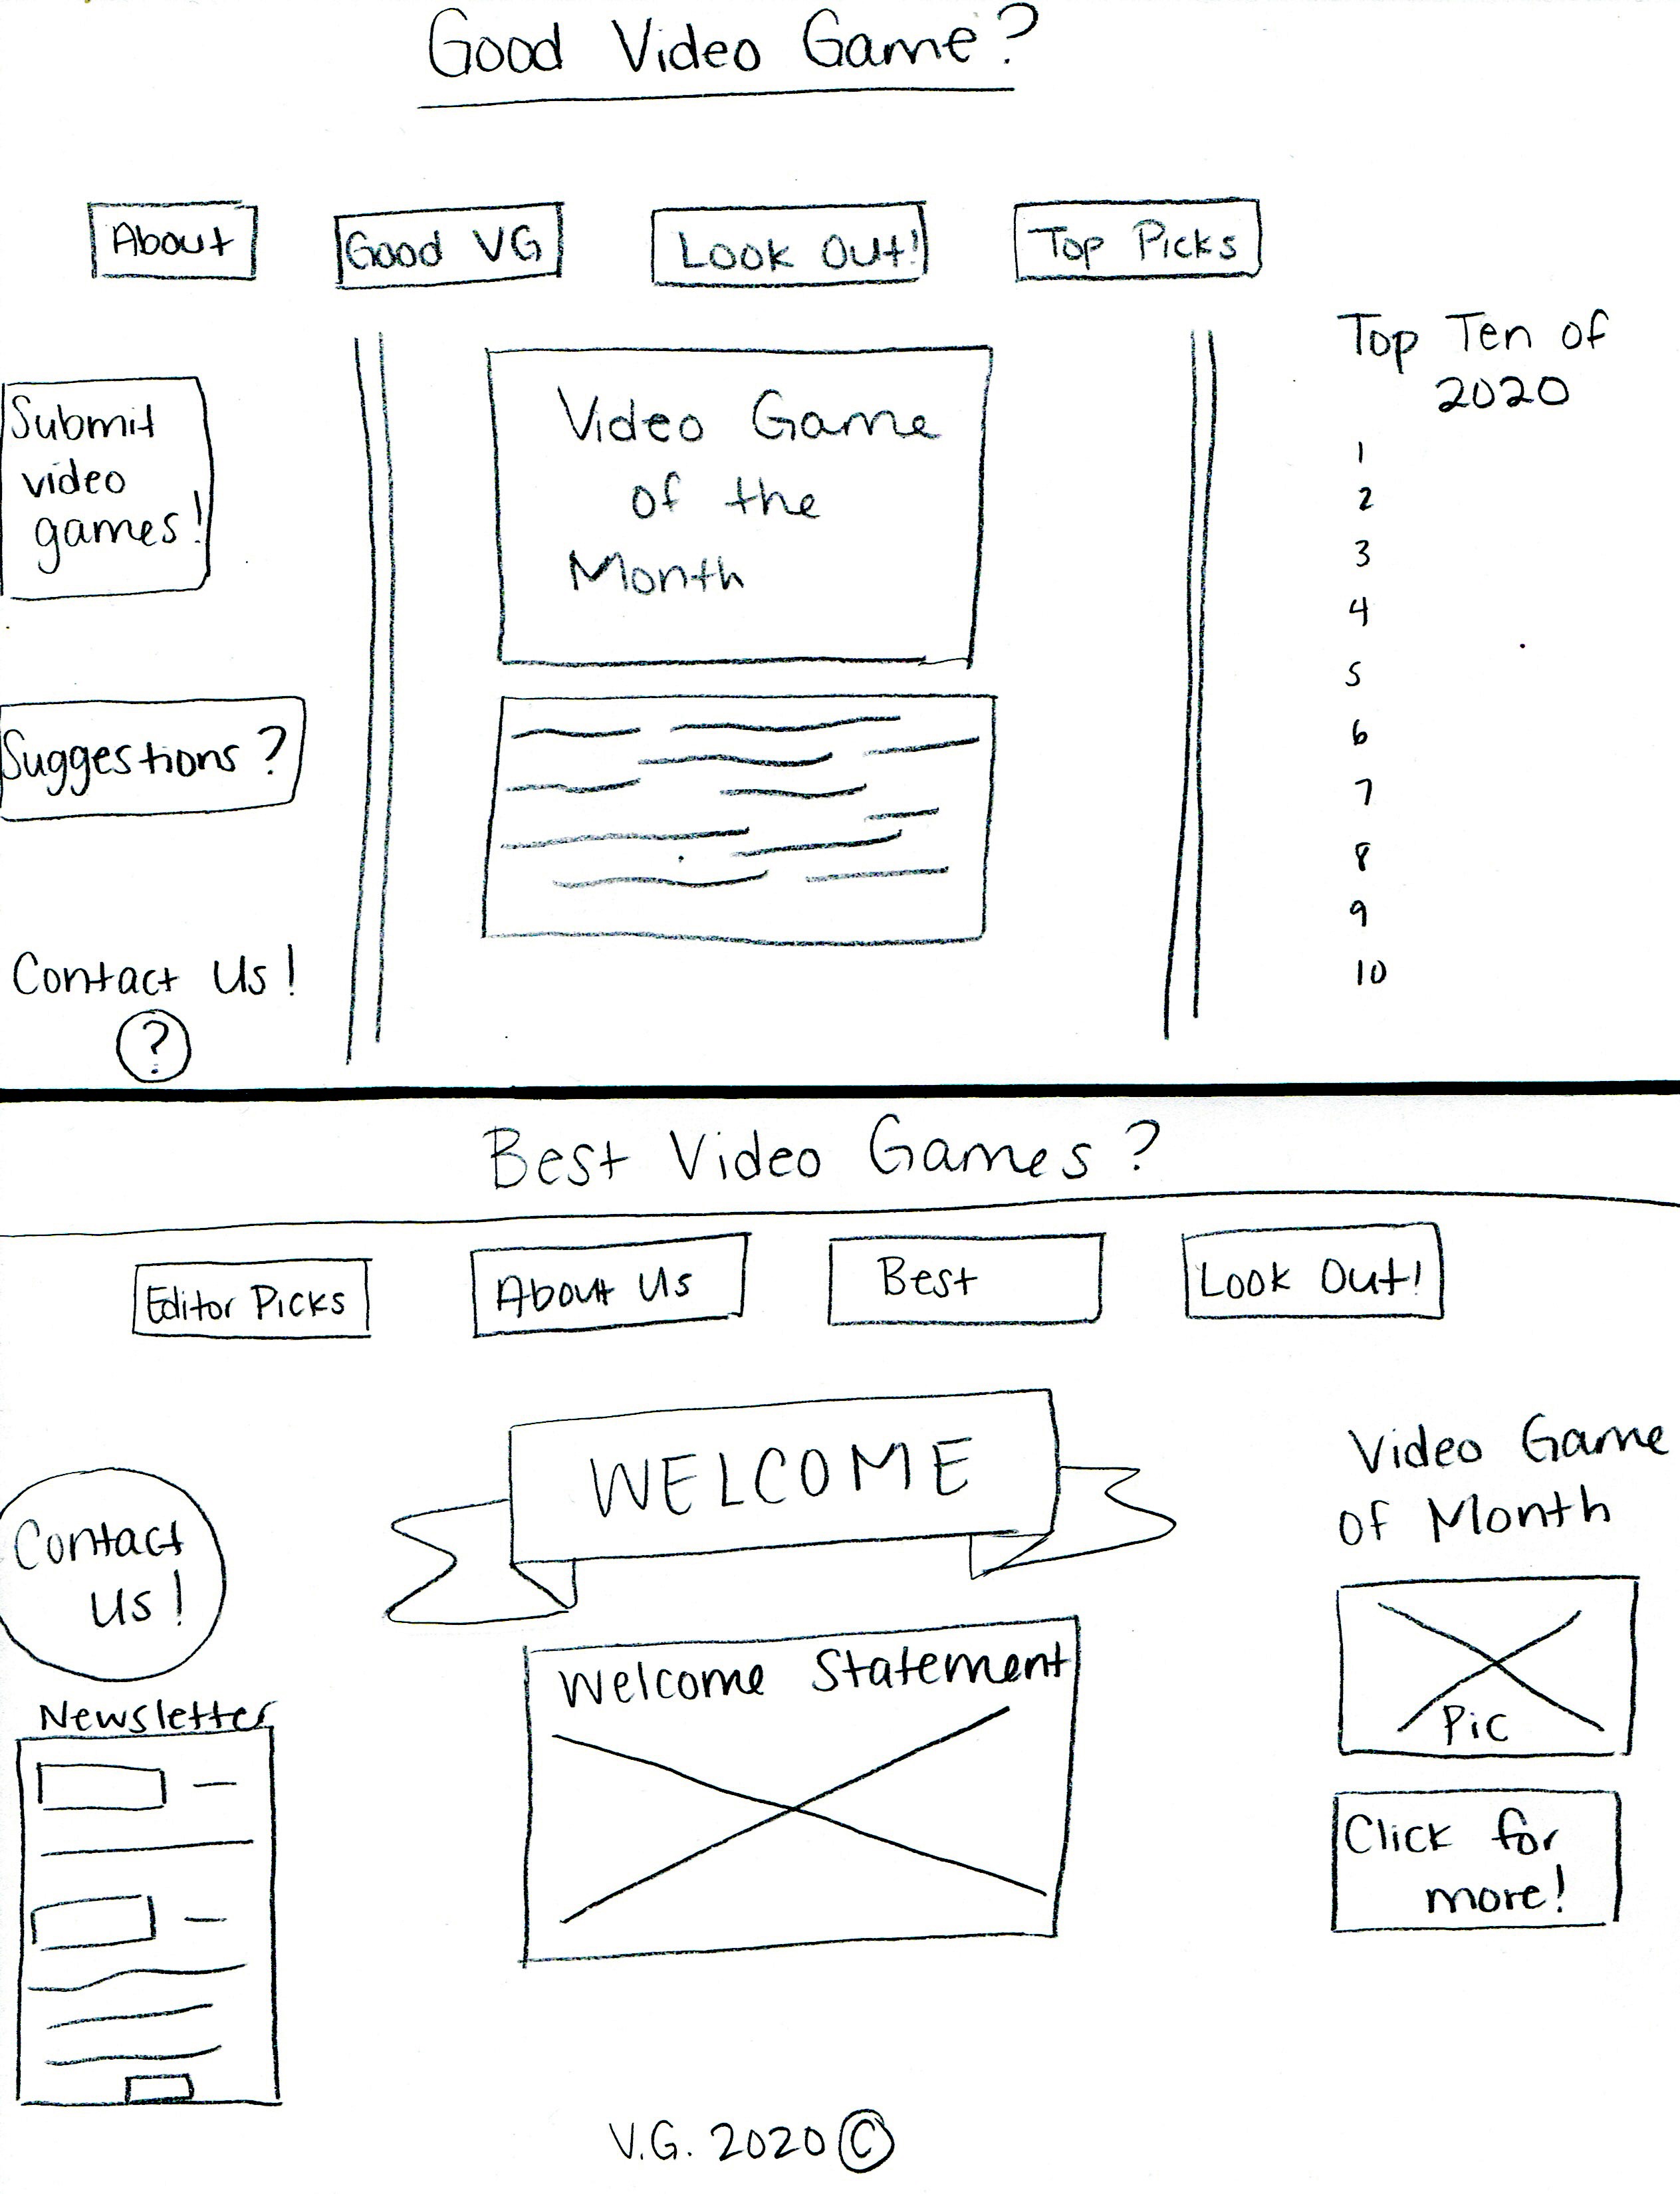 Good Video Game?
About
Good VG
Look Out!
Top Picks
Submit
video
games!
Suggestions?
Contact Us!
?
Video Game
of the
Month
Top Ten of
2020
1
2
3
4
5
6
7
8
9
10
Best Video Games?
Editor Picks
About Us
Best
Look Out!
Contact
us!
Newsletter
WELCOME
Welcome Statement
Video Game
of Month
Pic
Click for
more!
V.G. 2020 ©